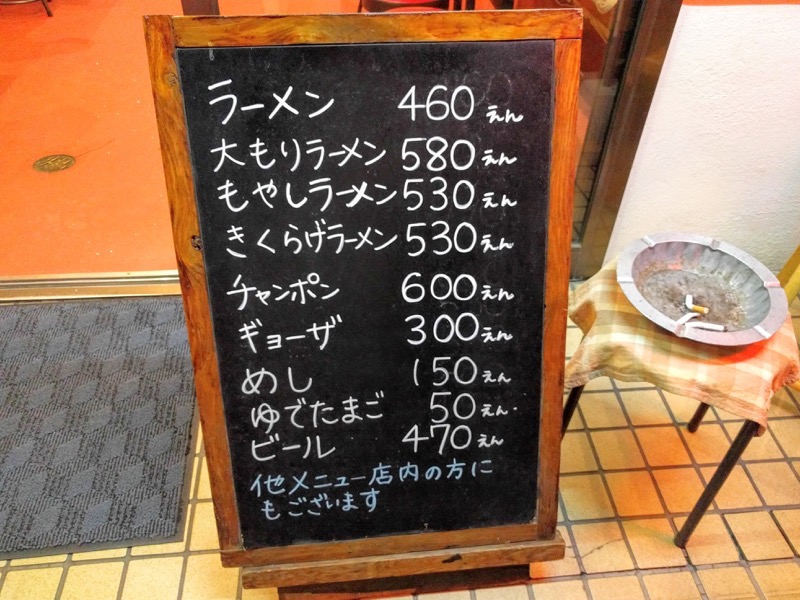 ラーメン 460えん
大もりラーメン 580えん
もやしラーメン 530えん
きくらげラーメン 530えん
チャンポン 600えん
ギョーザ 300えん
めし 150えん
ゆでたまご 50えん.
ビール 470えん
他メニュー店内の方に
もございます